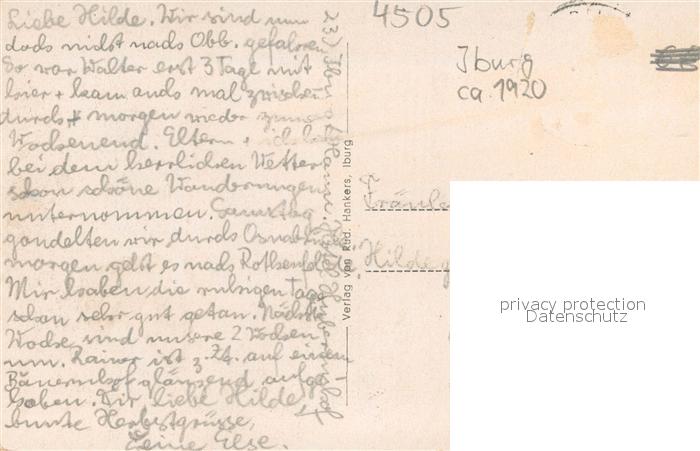 Liebe Hilde. Wir sind nun
doch nicht nach Obb. gefahren
So war Walter erst 3 Tage mit
hier + kam auch mal zwischen
durch + morgen wieder zum
Wochenend. Eltern + ich
bei dem herrlichen Wetter
schon schöne Wanderungen
unternommen. Samstag
gondelten wir durch Osnabrück
morgen geht es nach Rothenfelde
Mir haben die ruhigen Tage
schon sehr gut getan. Nächste
Woche sind unsere 2 Wochen
um. Rainer ist z. Zt. auf einem
Bauernhof glänzend aufge
hoben. Dir liebe Hilde
bunte Herbstgrüsse,
Deine Else.
23) Iburg Hann.
Verlag von Rud. Hankers, Iburg
4505
Iburg
ca. 1920
Fräulein
Hilde
privacy protection
Datenschutz